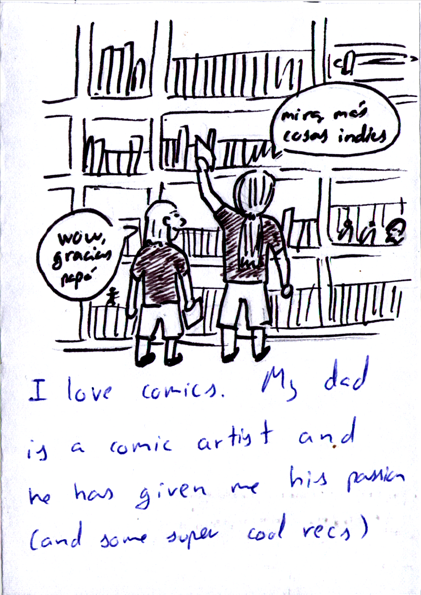 mira, más
cosas indies
wow,
gracias
papá
I love comics. My dad
is a comic artist and
he has given me his passion
(and some super cool recs)